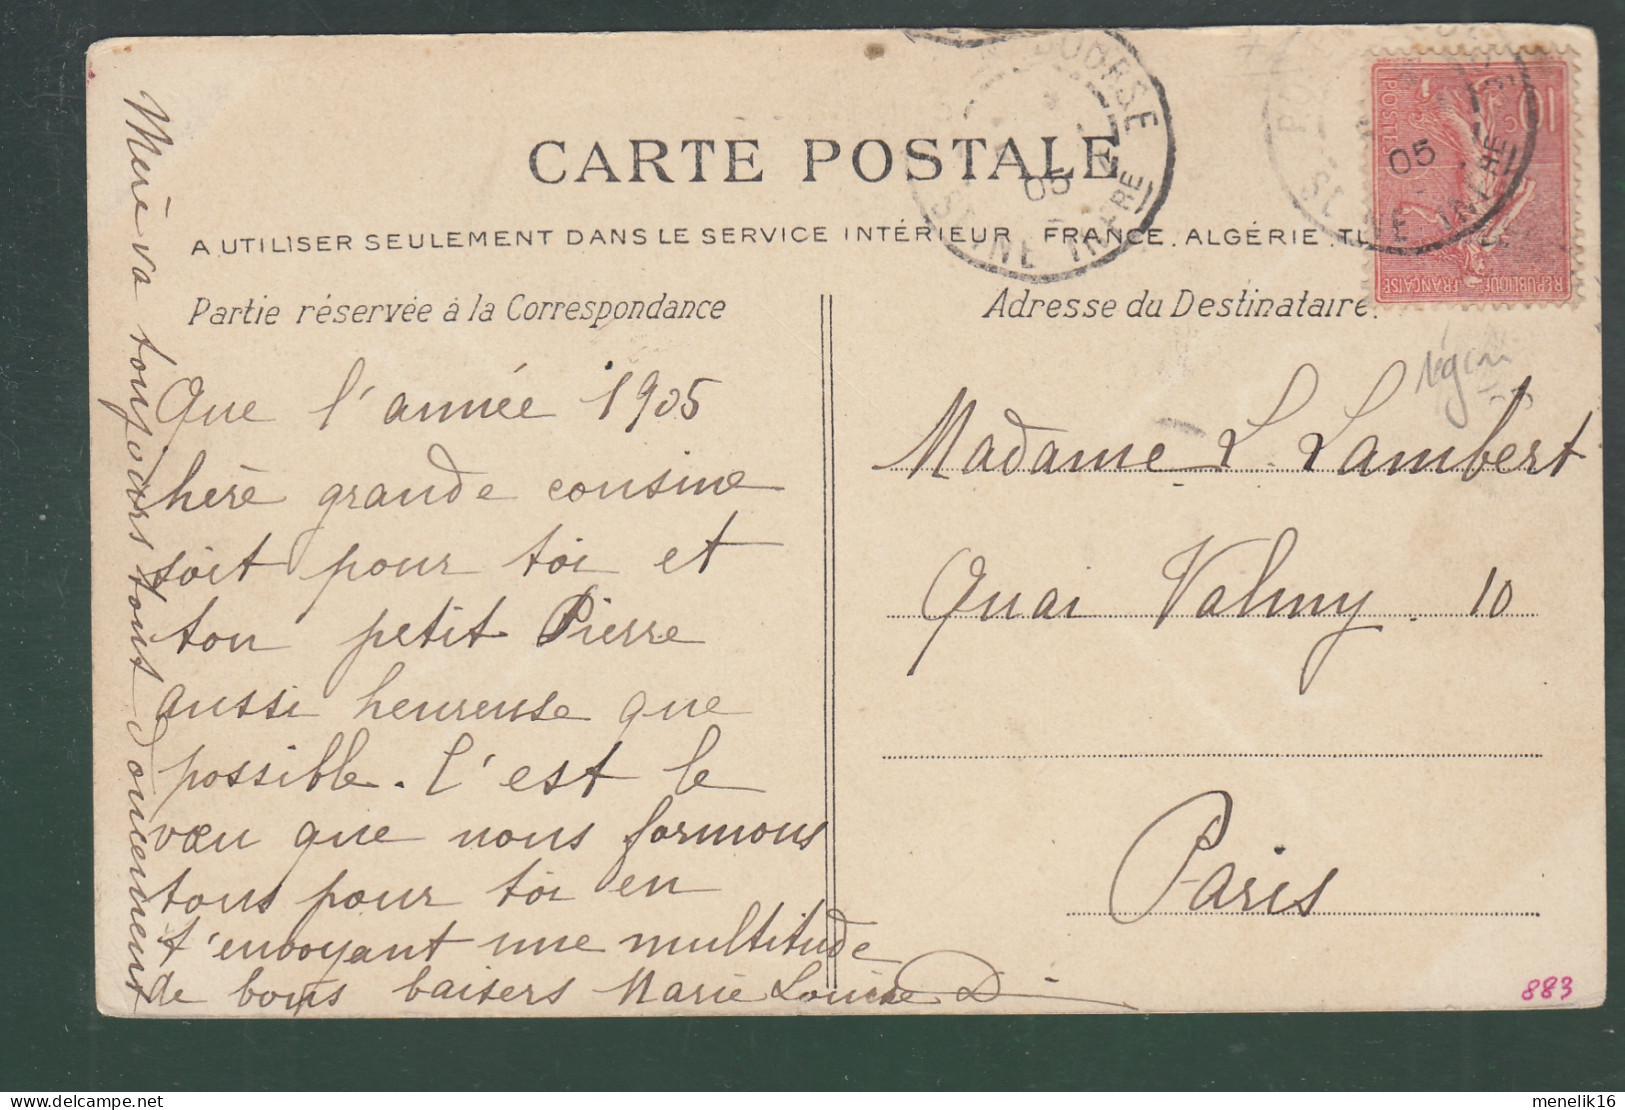 CARTE POSTALE
A UTILISER SEULEMENT DANS LE SERVICE INTÉRIEUR FRANCE. ALGÉRIE. TU
Partie réservée à la Correspondance
Que l'année 1905
chère grande cousine
soit pour toi et
ton petit Pierre
aussi heureuse que
possible. C'est le
vœu que nous formons
tous pour toi en
t'envoyant une multitude
de bons baisers Marie Louise D
Mère va toujours tout doucement
Adresse du Destinataire.
Madame L. Lambert
Quai Valmy. 10
Paris
BOURSE
05
SEINE INFRE
10 c
POSTES
REPUBLIQUE FRANÇAISE
05
SEINE INFRE
883
menelik16